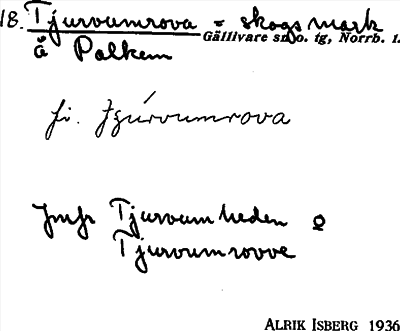 18. Tjurvumrova = skogsmark
Gällivare sn o. tg, Norrb. l.
å Palkem
fi. Tzúrvumrova
Jmfr Tjurvumheden o
Tjurvumrovve
ALRIK ISBERG 1936